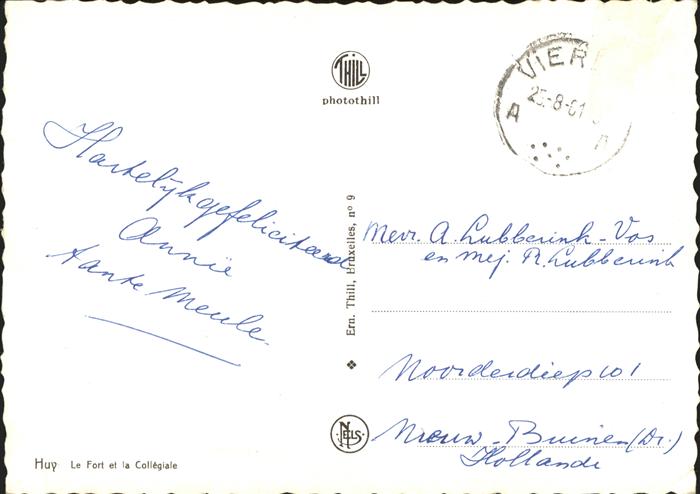 THILL
photothill
VIER
25-8-61
A A
Hartelijk gefeliciteerd
Annie
tante Meule
Ern. Thill, Bruxelles, nº 9
Mevr. A. Lubberink-Vos
en mej. R. Lubberink
Noorderdiep 101
Nieuw-Buinen (Dr.)
Hollande
NELS
Huy Le Fort et la Collégiale